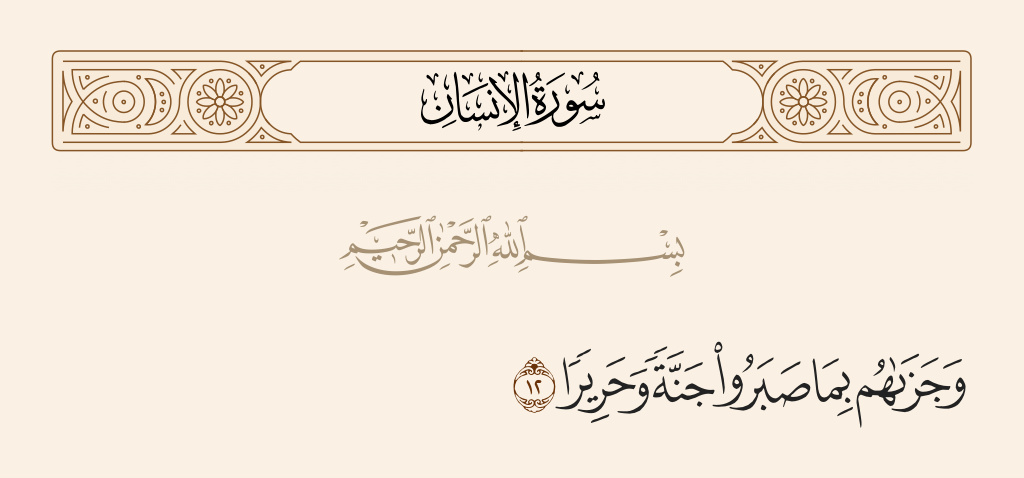 سُورَةُ الإِنسَانِ
بِسْمِ ٱللَّهِ ٱلرَّحْمَٰنِ ٱلرَّحِيمِ
وَجَزَىٰهُم بِمَا صَبَرُوا۟ جَنَّةً وَحَرِيرًا ١٢